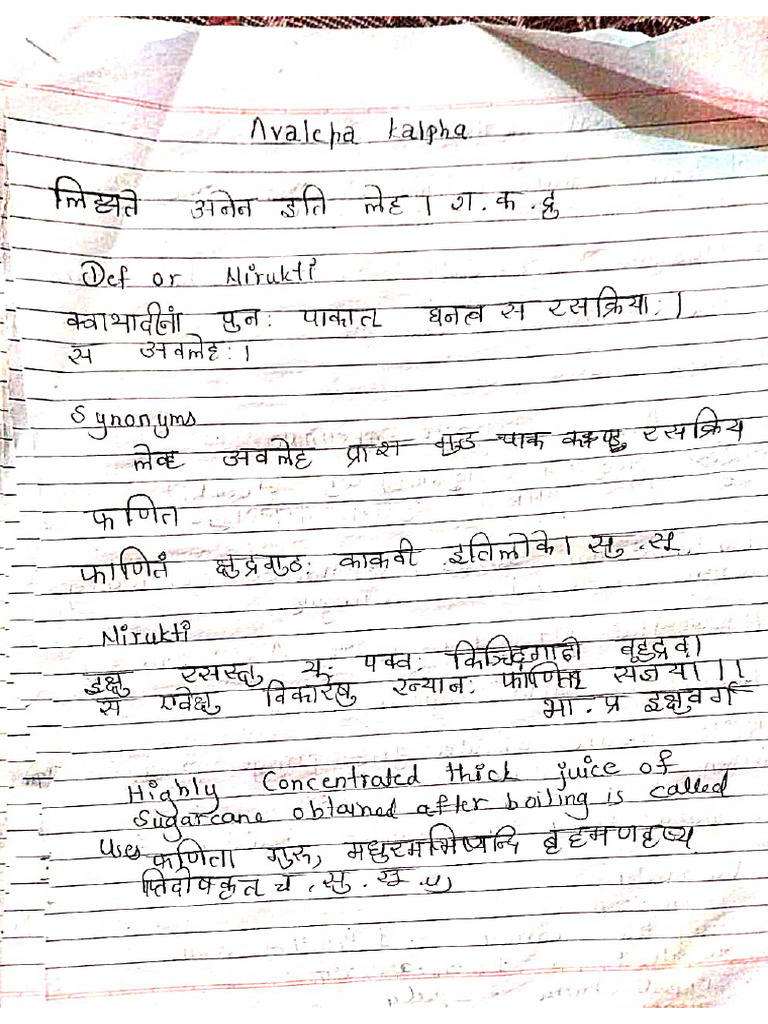 Avaleha Kalpha
लिह्यते अनेन इति लेह । श.क.द्रु
Def or Nirukti
क्वाथादीनां पुनः पाकात घनत्व स रसक्रियाः ।
स अवलेहः ।
Synonyms
लेह अवलेह प्राश गुड पाक रसक्रिय
फणित
फाणितं क्षुद्रगुठः काकवी इतिलोके । सु.सू
Nirukti
इक्षु रसस्तु यः पक्वः किञ्चिदगाढो बृहुद्रव ।
स एवेक्षु विकारेषु ख्यानः फाणित सज्ञया ।।
भा.प्र इक्षुवर्ग
Highly Concentrated thick juice of
Sugarcane obtained after boiling is called
Uses फणिता गुरु, मधुरमभिष्यन्दि बृंहमण
त्रिदोषकृत च . सु. सू.